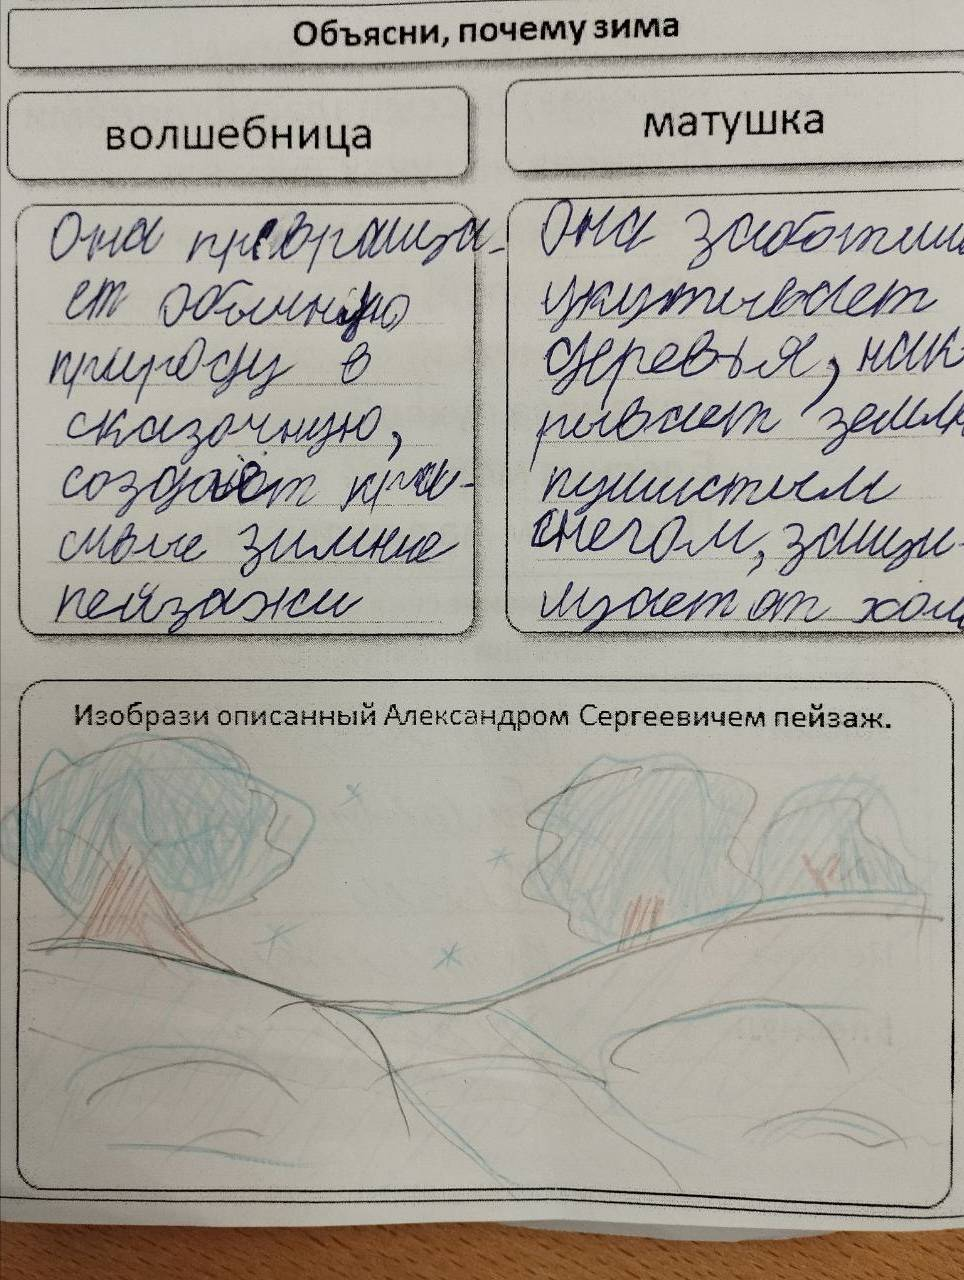 Объясни, почему зима
волшебница
матушка
Она превраща-
ет обычную
природу в
сказочную,
создаёт кра-
сивые зимние
пейзажи
Она заботли
укутывает
деревья, нак
рывает землю
пушистым
снегом, защи-
щает от хол
Изобрази описанный Александром Сергеевичем пейзаж.